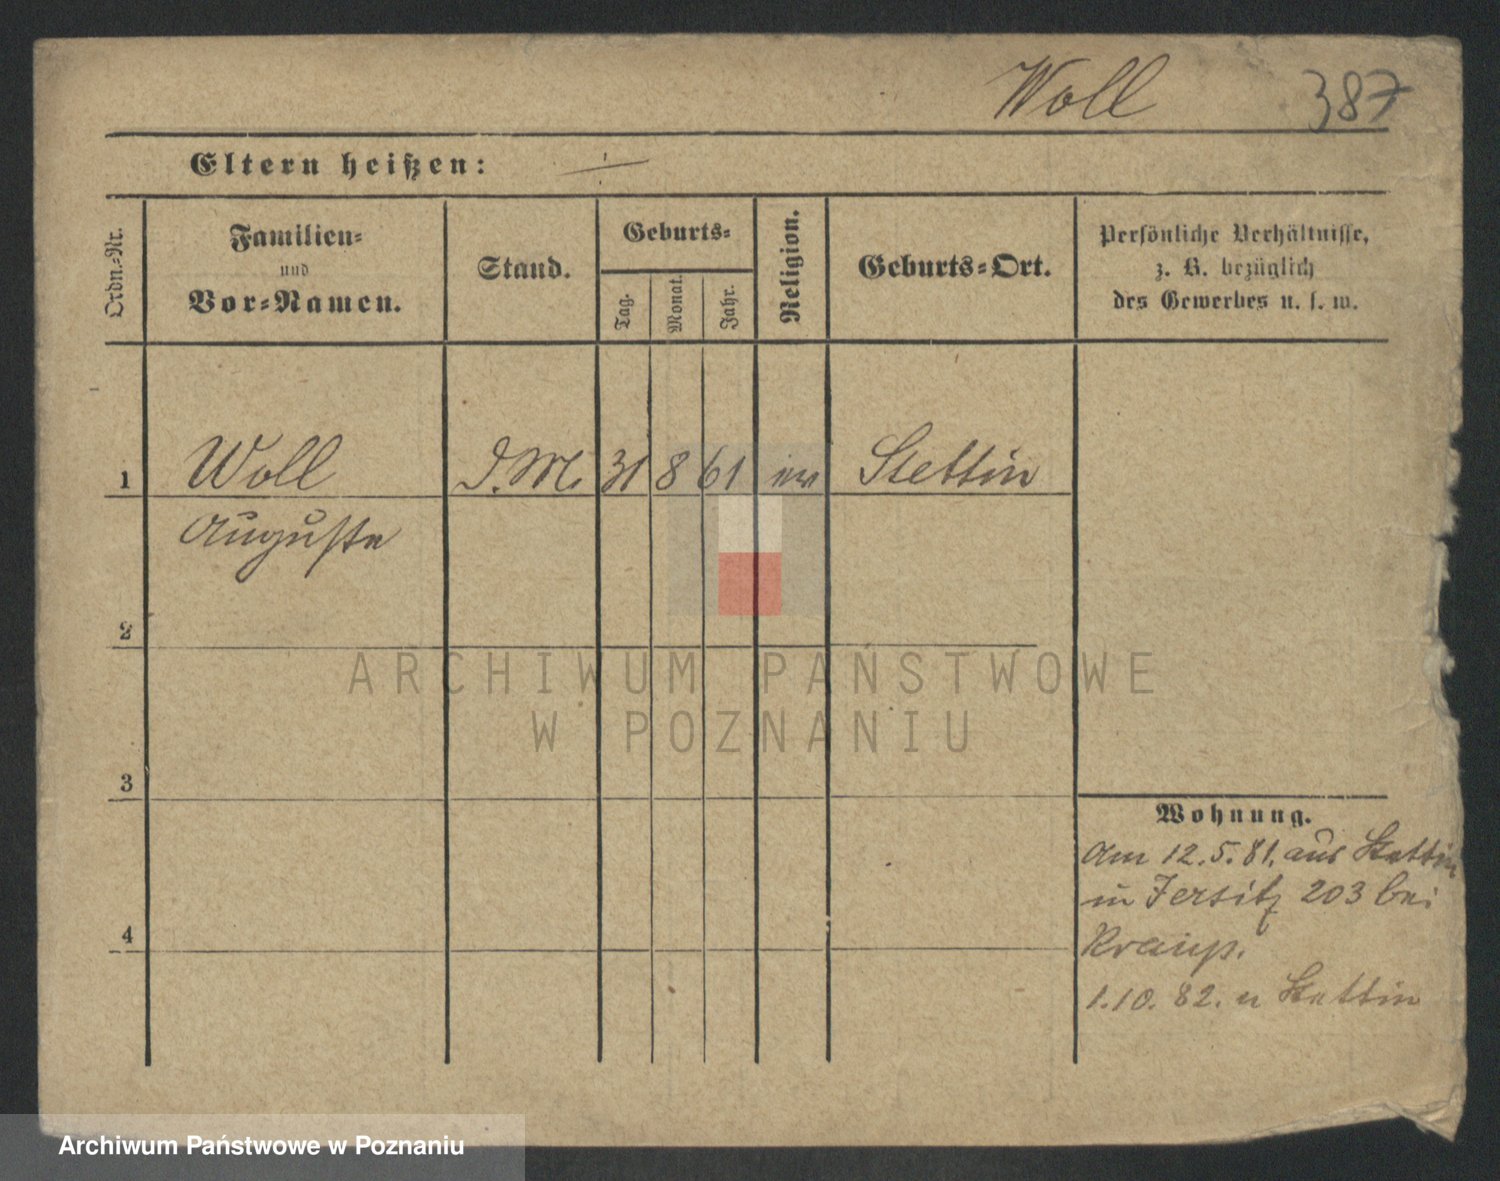 Woll 387
Eltern heißen:
Ordn.-Nr.
Familien-
und
Vor-Namen.
Stand.
Geburts-
Tag.
Monat.
Jahr.
Religion.
Geburts-Ort.
Persönliche Verhältnisse,
z. B. bezüglich
des Gewerbes u. s. w.
1 Woll D.M. 31 8 61 ev Stettin
Auguste
2
3
4
Wohnung.
Am 12.5.81. aus Stettin
in Jersitz 203 bei
1.10.82. n Stettin
ARCHIWUM PAŃSTWOWE
W POZNANIU
Archiwum Państwowe w Poznaniu